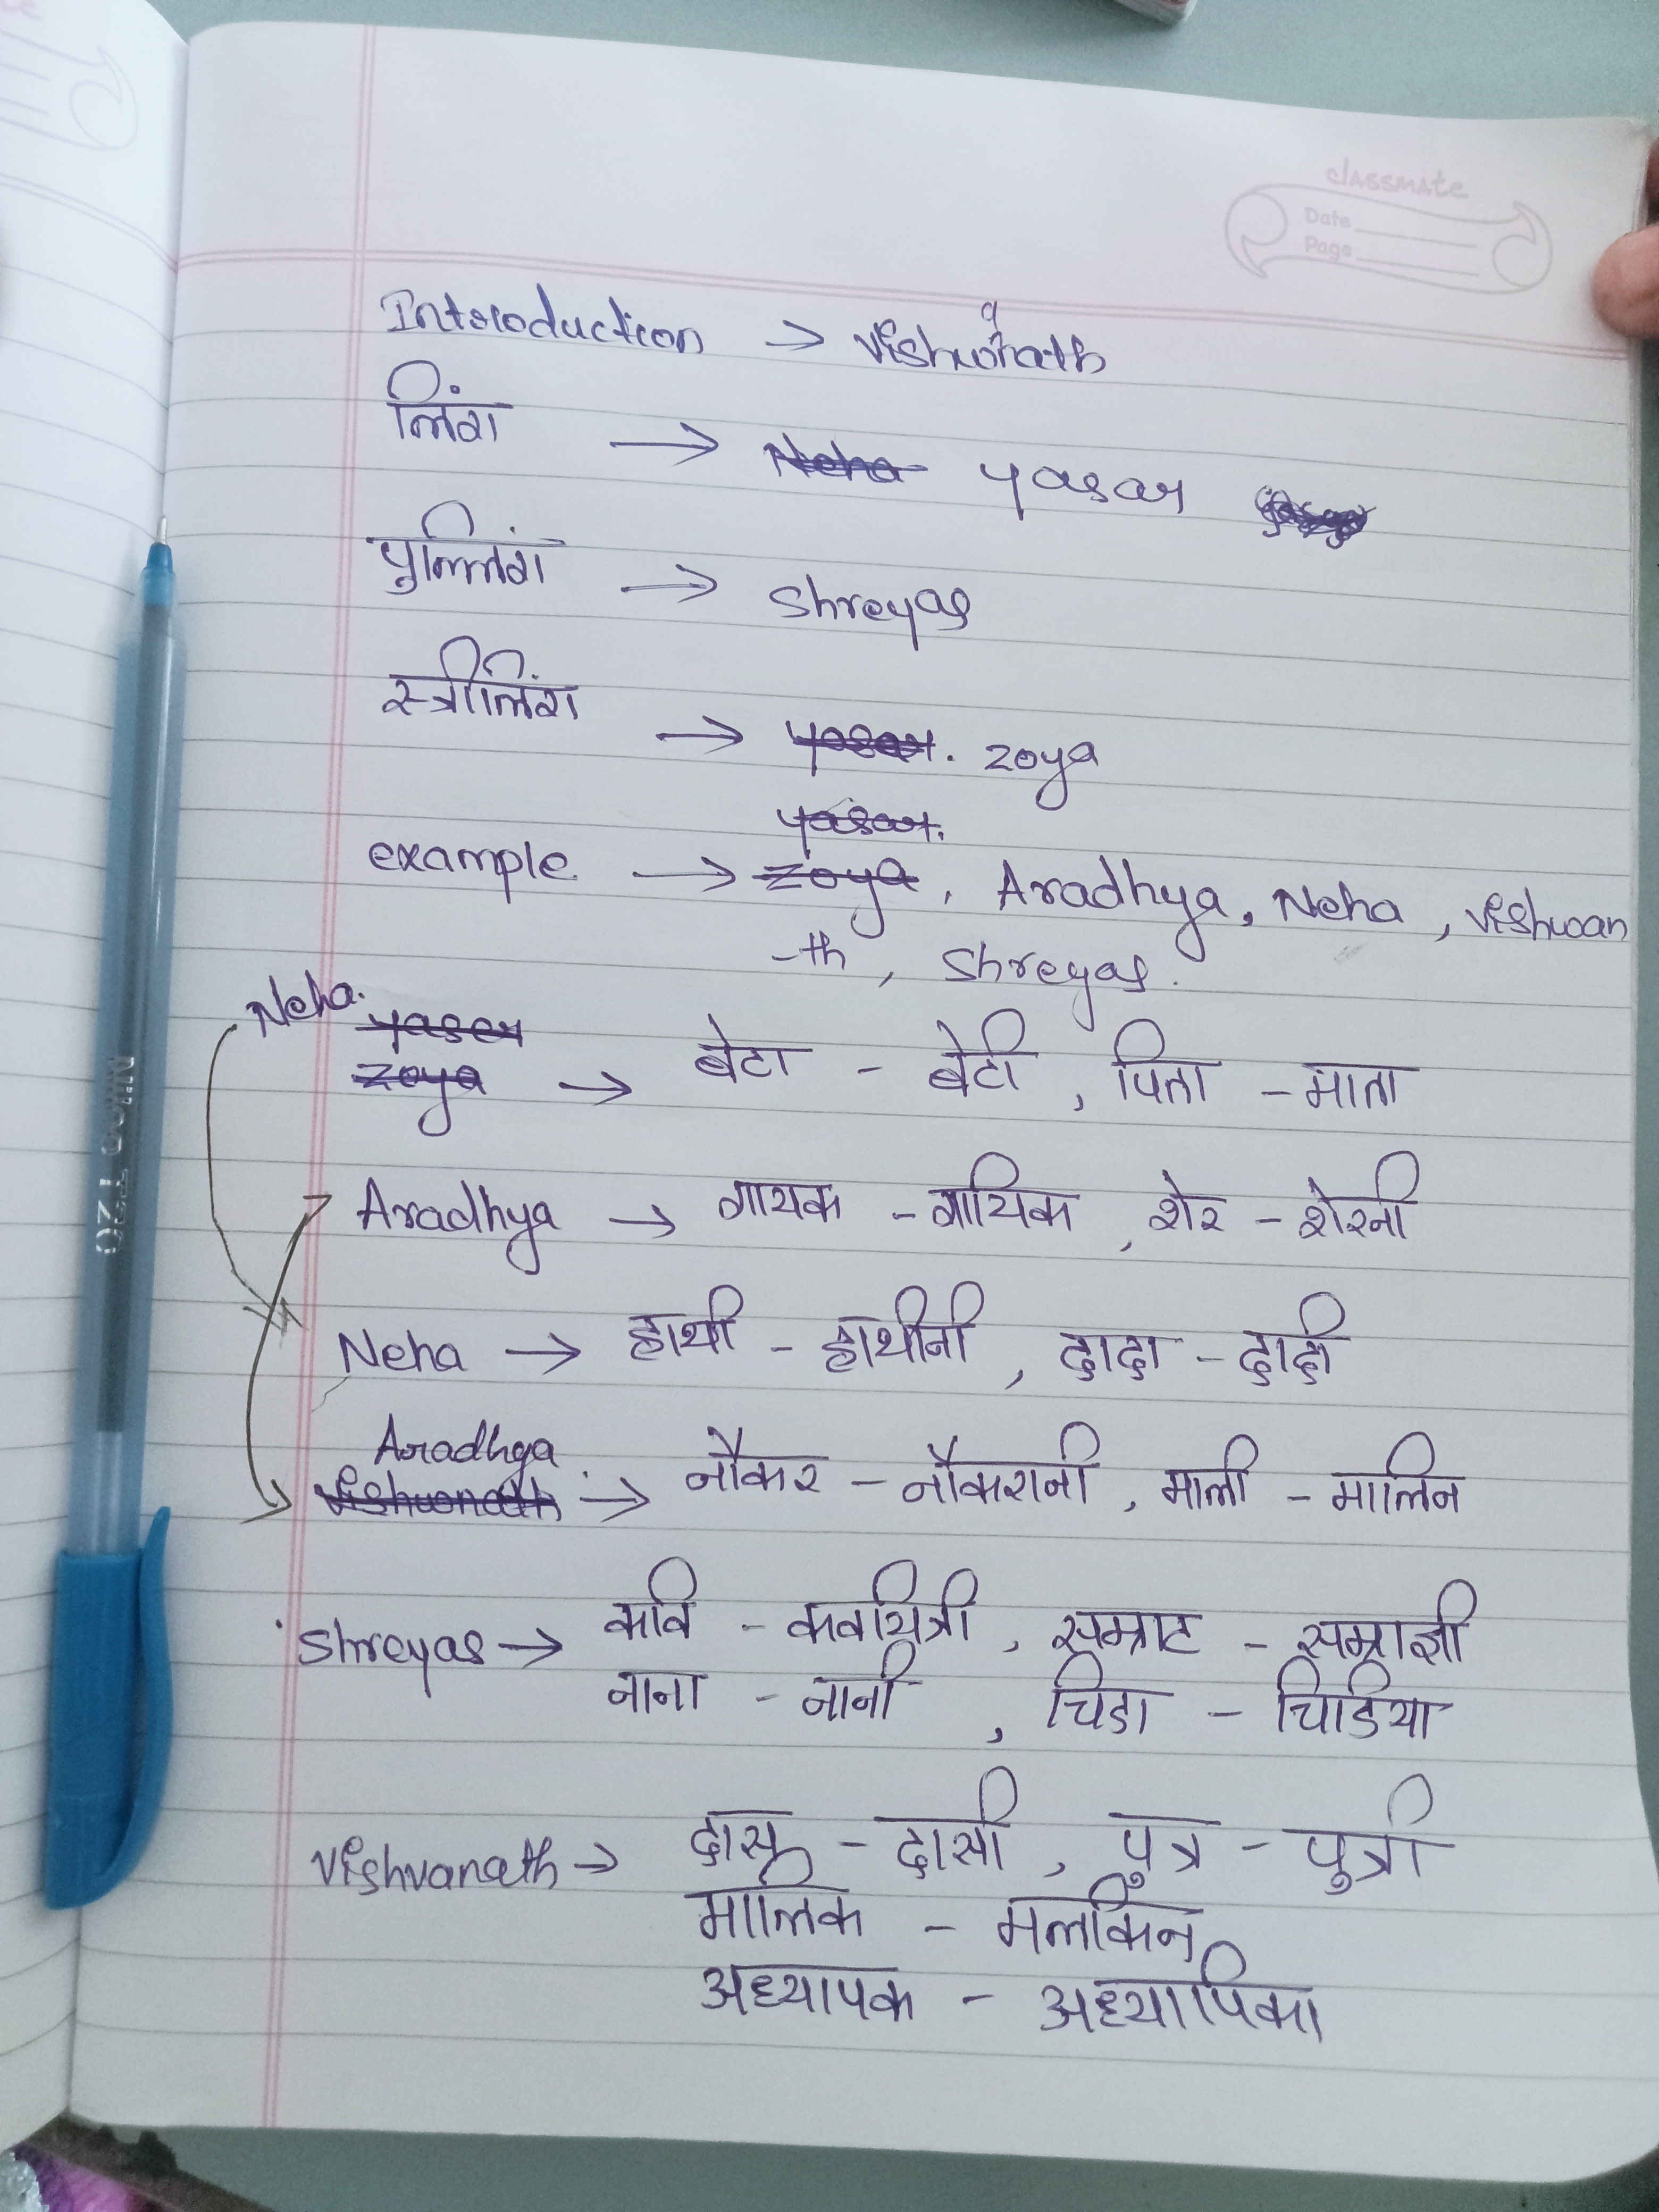 classmate
Date
Page
Introduction → Vishvanath
लिंग → Neha yasar
पुल्लिंग → Shreyas
स्त्रीलिंग → yasar. zoya
yasar.
example → zoya, Aradhya, Neha, Vishvan
-th, Shreyas.
Neha. yaser
zoya → बेटा - बेटी, पिता - माता
Aradhya → गायक - गायिक, शेर - शेरनी
Neha → हाथी - हाथीनी, दादा - दादी
Aradhya
Vishvanath → नौकर - नौकरानी, माली - मालिन
Shreyas → कवि - कवयित्री, सम्राट - सम्राज्ञी
नाना - नानी, चिडा - चिडिया
Vishvanath → दास - दासी, पुत्र - पुत्री
मालिक - मलकिन
अध्यापक - अध्यापिका
NIKOO T20